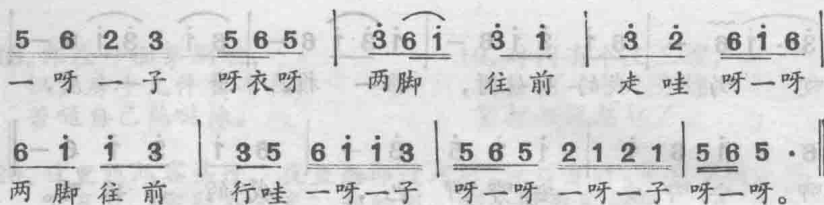 5 6 2 3 5 6 5 | 3 6 i 3 i | 3 2 6 i 6 |
一 呀 一 子 呀衣呀 两脚 往 前 走 哇 呀 一 呀
6 i i 3 | 3 5 6 i i 3 | 5 6 5 2 1 2 1 | 5 6 5 · ‖
两 脚 往 前 行哇 一呀一子 呀一呀 一呀一子 呀一呀。